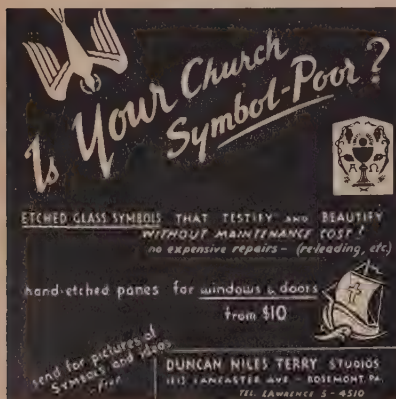 Is Your Church
Symbol-Poor?
Α Ω
ETCHED GLASS SYMBOLS THAT TESTIFY AND BEAUTIFY
WITHOUT MAINTENANCE COST!
no expensive repairs - (re-leading, etc.)
hand-etched panes for windows & doors
from $10
send for pictures of
Symbols and ideas
Free
DUNCAN NILES TERRY STUDIOS
LANCASTER AVE - ROSEMONT, PA.
TEL. LAWRENCE 5-4510